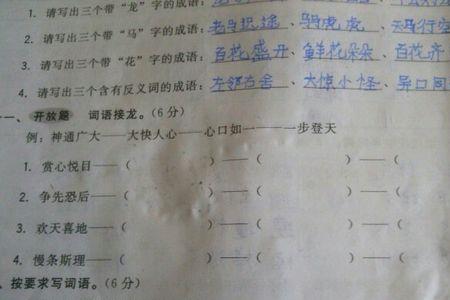 1. 请写出三个带“龙”字的成语:
2. 请写出三个带“马”字的成语: 老马识途、马马虎虎、天马行空
3. 请写出三个带“花”字的成语: 百花盛开、鲜花朵朵、百花齐
4. 请写出三个含有反义词的成语: 左邻右舍、大惊小怪、异口同
一、开放题 词语接龙。(6分)
例:神通广大——大快人心——心口如一——一步登天
1. 赏心悦目——( )—( )—(
2. 争先恐后——( )—( )—(
3. 欢天喜地——( )—( )—(
4. 慢条斯理——( )—( )—(
、按要求写词语。(6分)